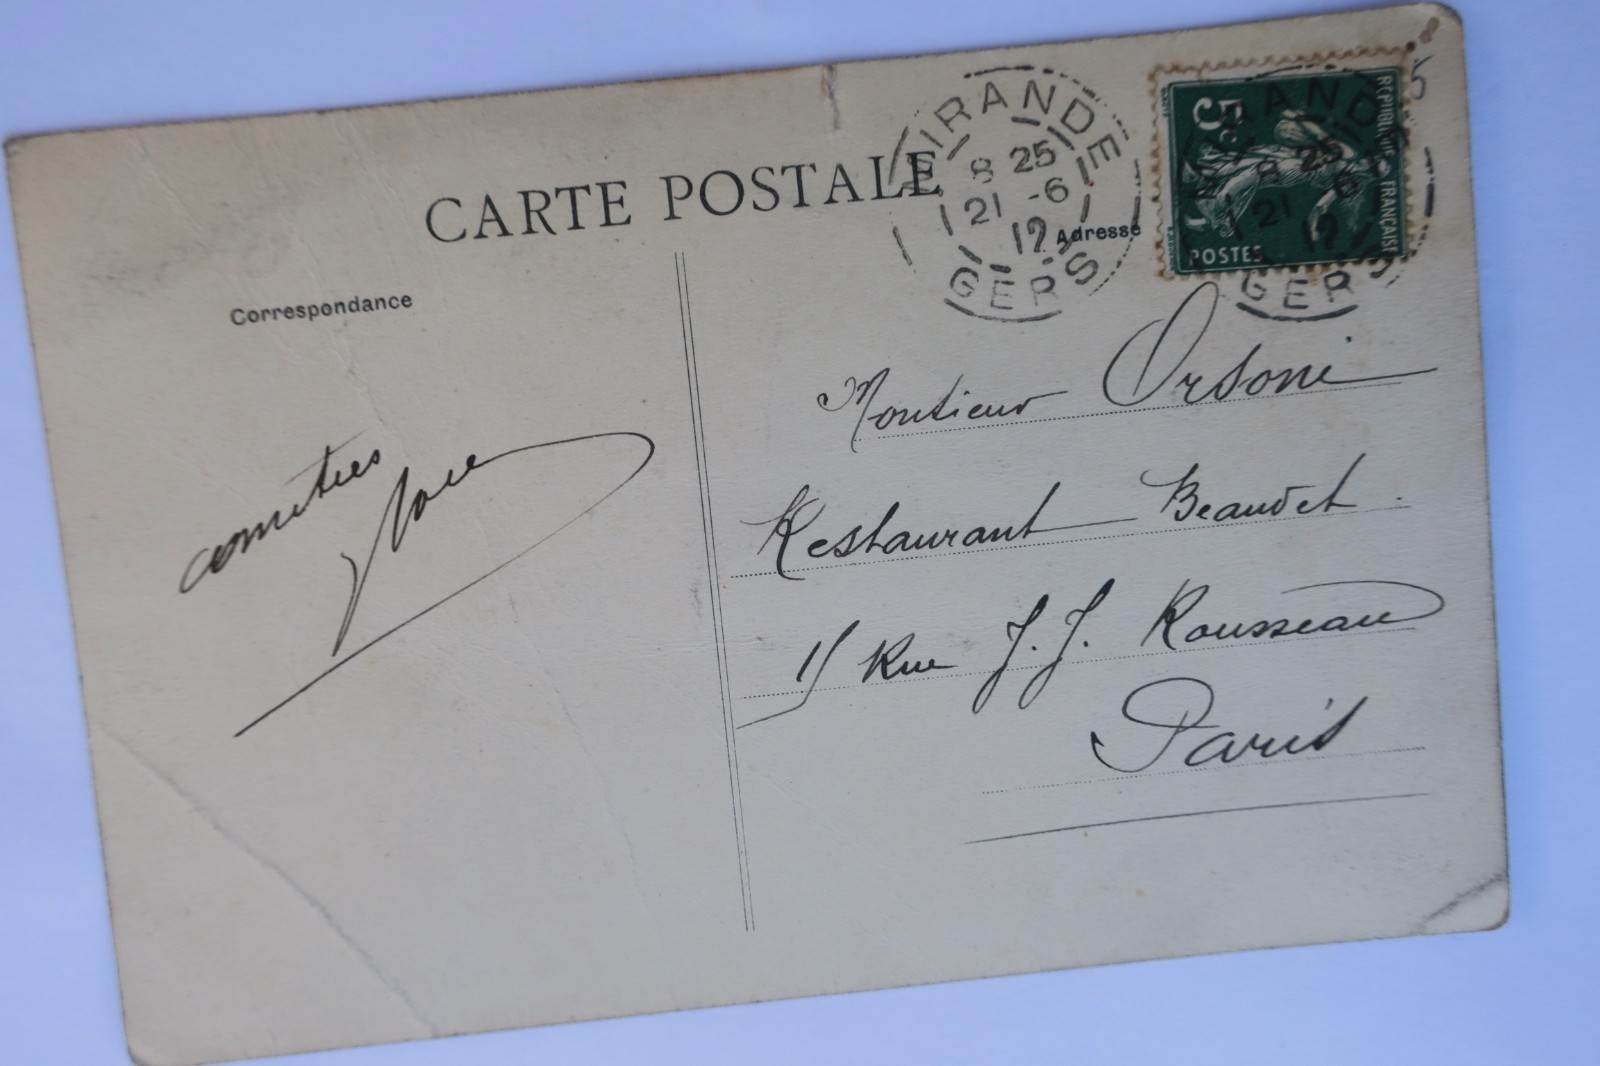 CARTE POSTALE
MIRANDE
8 25
21 -6
12
GERS
5c
REPUBLIQUE FRANÇAISE
POSTES
MIRANDE
8 25
21 -6
12
GERS
5
Correspondance
Adresse
amitiés
Monsieur Orsoni
Restaurant Beaudet
11 Rue J. J. Rousseau
Paris